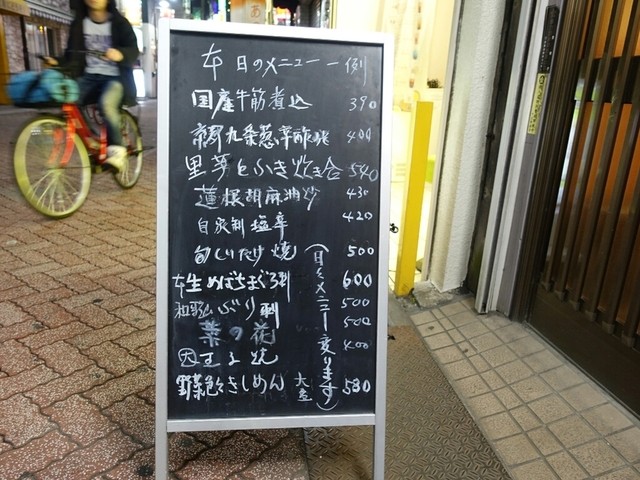 本日のメニュー一例
国産牛筋煮込 390
京都九条葱辛酢味 400
里芋とふき炊き合 540
蓮根胡麻油炒 430
自家製塩辛 420
旬しいたけ焼 500
本生めばちまぐろ刺 600
和歌山ぶり刺 500
菜の花 500
するめ焼 400
野菜色々きしめん 大盛 580
(日々メニュー変ります)